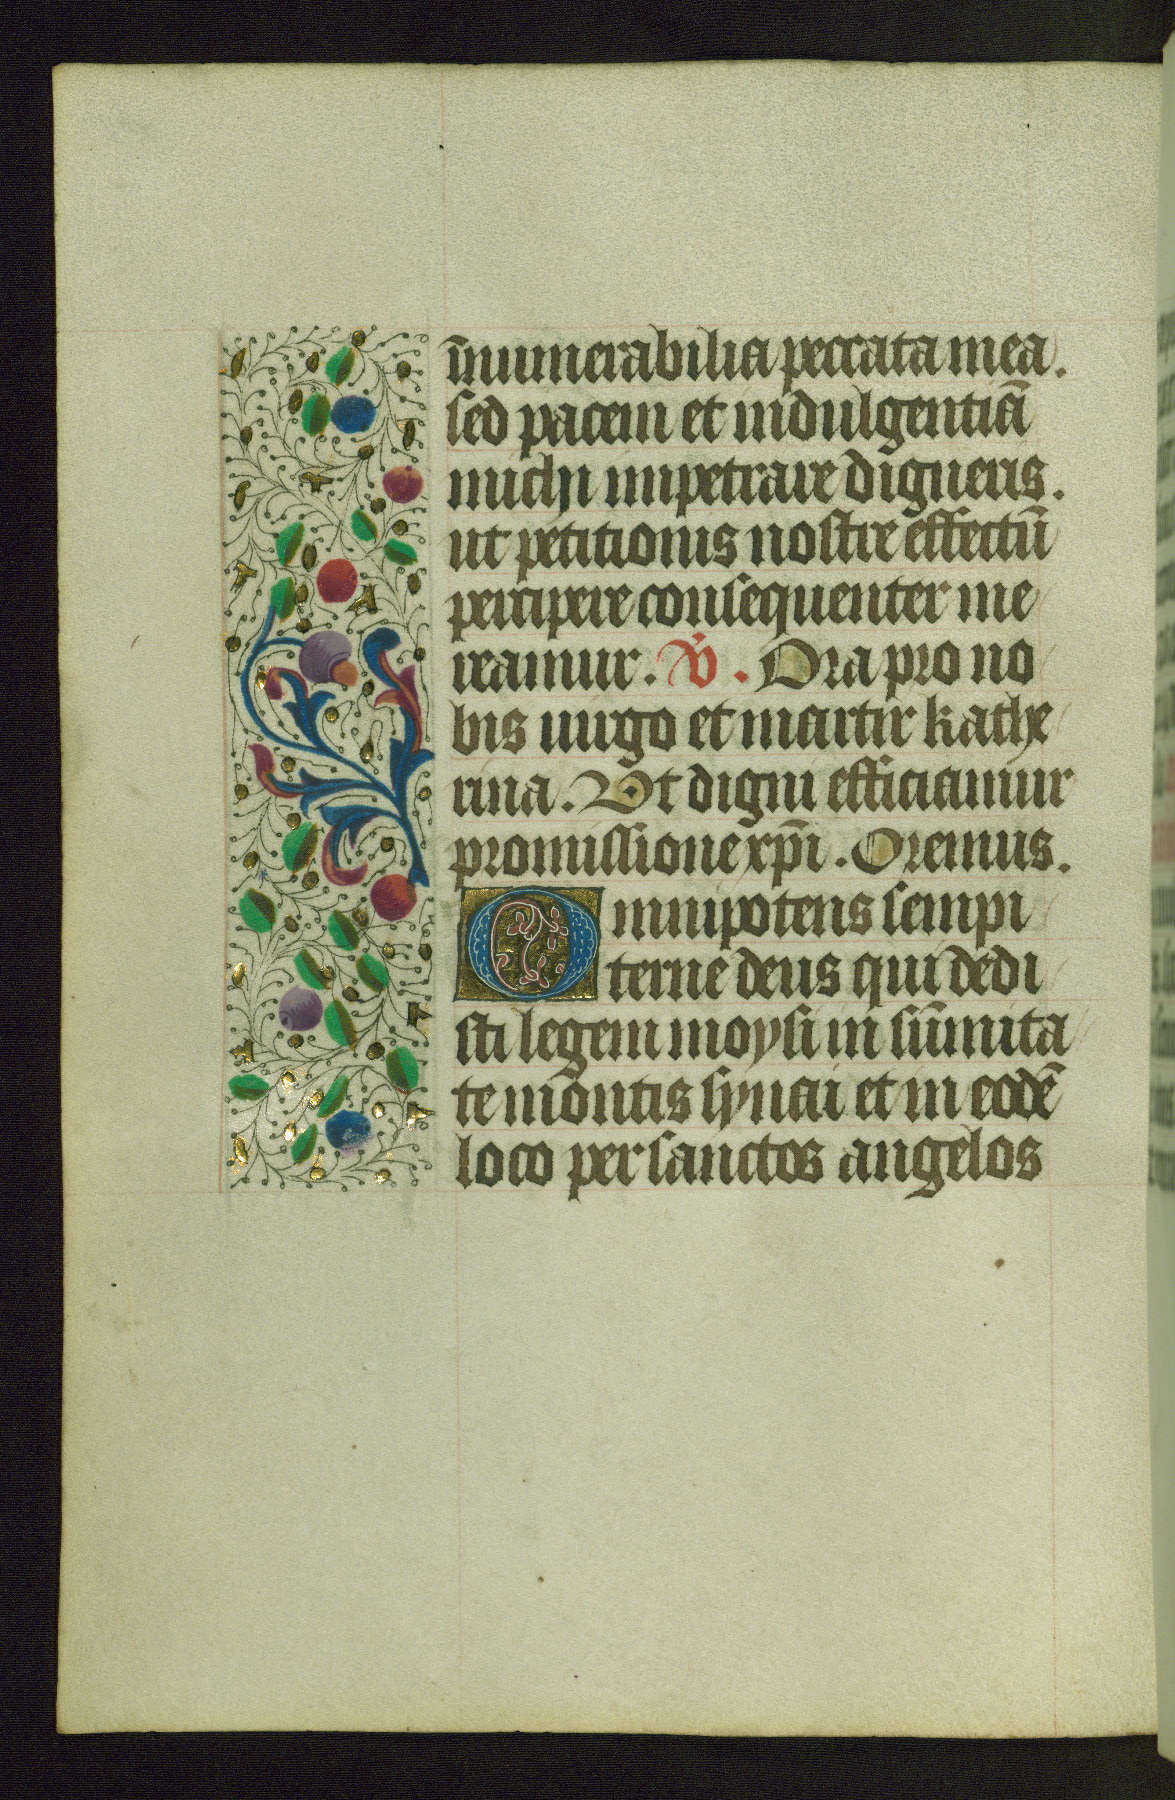 īnumerabilia peccata mea.
sed pacem et indulgentiā
michi impetrare digneris.
ut petitionis nostre effectū
percipere consequenter me
reamur. V̇. Ora pro no
bis uirgo et martir kathe
rina. Ut digni efficiamur
promissione xp̄i. Oremus.
Omnipotens sempi
terne deus qui dedi
sti legem moysi in sūmita
te montis synai et in eodē
loco per sanctos angelos